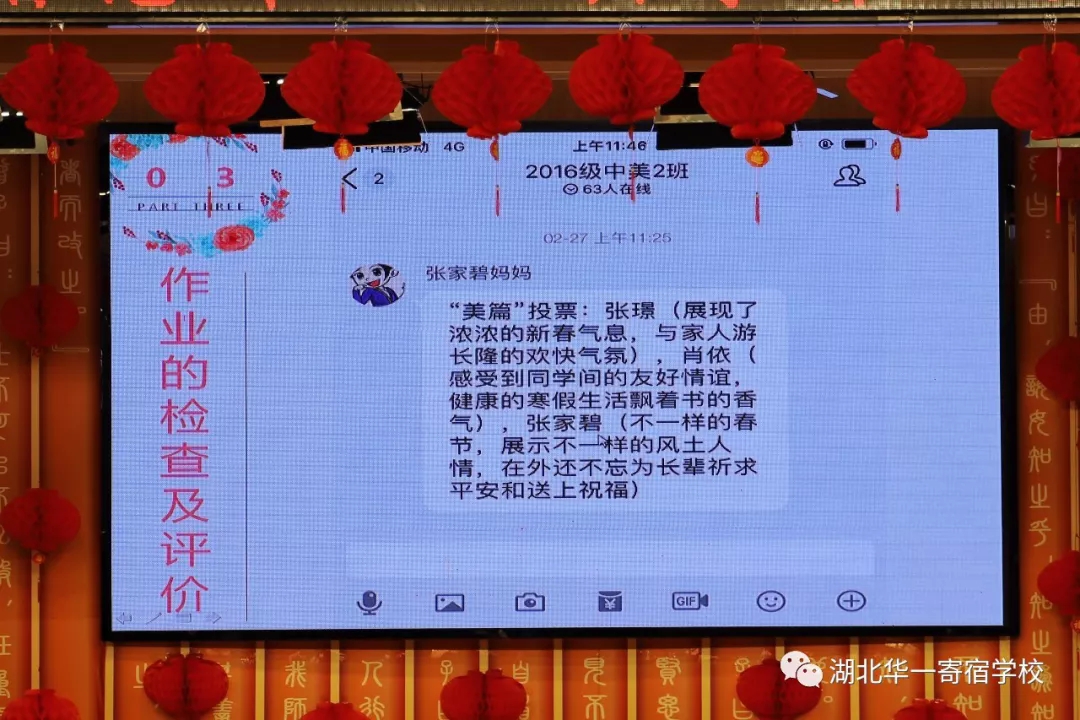 03
PART THREE
作业的检查及评价
中国移动 4G
上午11:46
2
2016级中美2班
63人在线
02-27 上午11:25
张家碧妈妈
“美篇”投票：张璟（展现了
浓浓的新春气息，与家人游
长隆的欢快气氛），肖依（
感受到同学间的友好情谊，
健康的寒假生活飘着书的香
气），张家碧（不一样的春
节，展示不一样的风土人
情，在外还不忘为长辈祈求
平安和送上祝福）
GIF
湖北华一寄宿学校